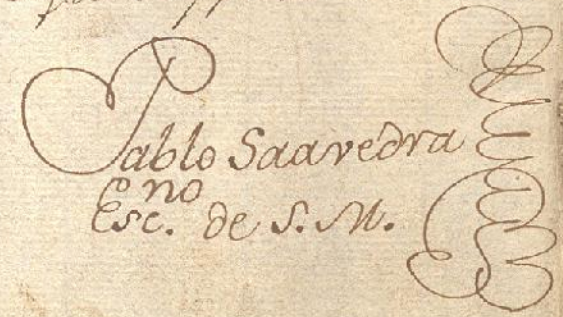 Pablo Saavedra
Esc.no de S. M.